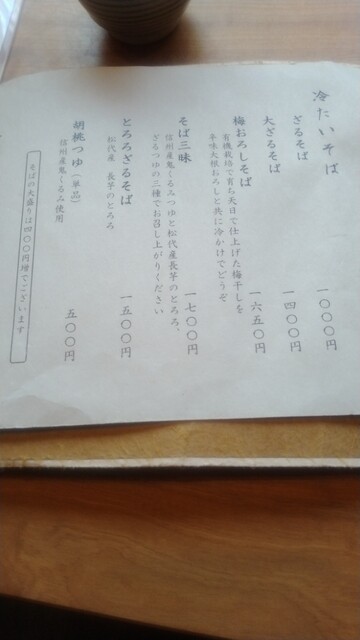 冷たいそば
ざるそば 一〇〇〇円
大ざるそば 一四〇〇円
梅おろしそば 一六五〇円
有機栽培で育ち天日で仕上げた梅干しを
辛味大根おろしと共に冷かけでどうぞ
そば三昧 一七〇〇円
信州産鬼くるみつゆと松代産長芋のとろろ、
ざるつゆの三種でお召し上がりください
とろろざるそば 一五〇〇円
松代産 長芋のとろろ
胡桃つゆ(単品) 五〇〇円
信州産鬼くるみ使用
そばの大盛りは四〇〇円増でございます